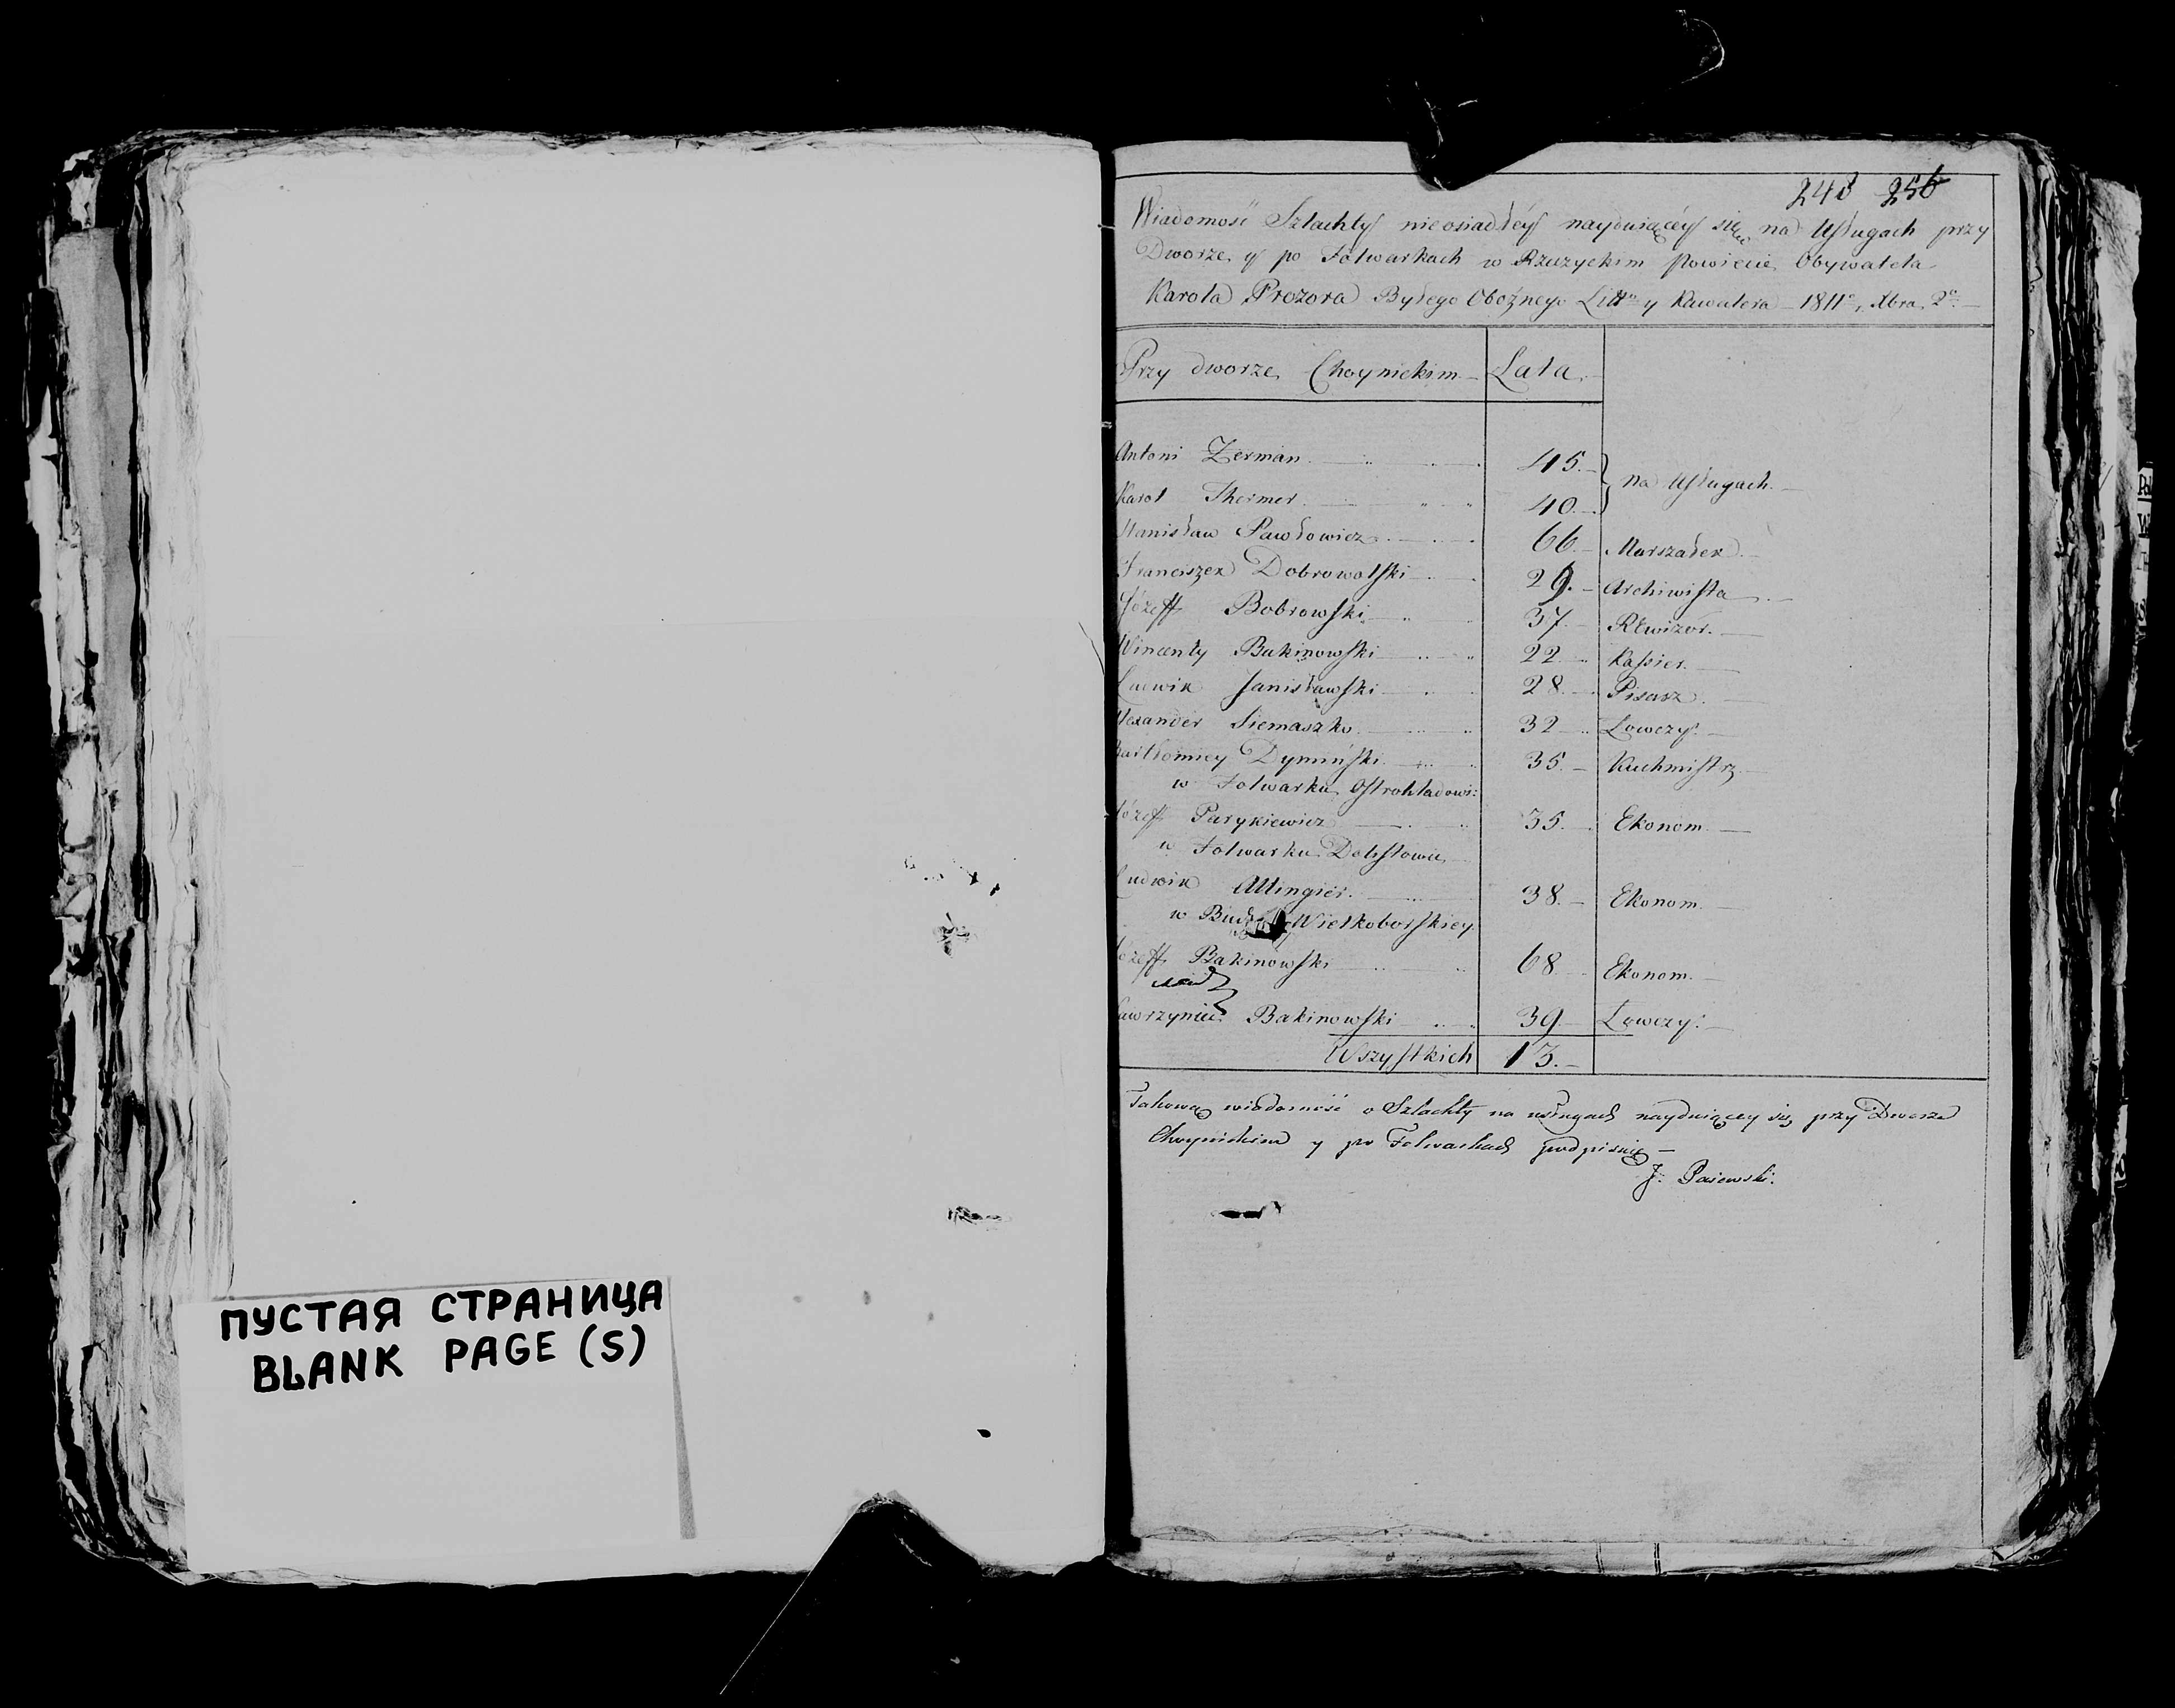 ПУСТАЯ СТРАНИЦА
BLANK PAGE (S)
248 256
Wiadomość Szlachty nieosiadłéy nayduiącéy się na Usługach przy
Dworze y po Folwarkach w Rzeczyckim Powiecie Obywatela
Karola Prozora Byłego Oboźnego Litt y Kawalera 1811 Xbra 2
Przy dworze Choynickim Lata
Antoni Zerman 45. na Usługach.
Karol Thermer. 40.
Stanisław Pawłowicz 66. Marszałek
Franciszek Dobrowolski 29. Archiwista
Józeff Bobrowski 37. Rewizor.
Wincenty Bakinowski 22. Kassier.
Ludwik Janisławski 28. Pisarz.
Alexander Siemaszko 32 Łowczy.
Bartłomiey Dymiński 35. Kuchmistrz
w Folwarku Ostrohladowi:
Józeff Parykiewicz 35. Ekonom.
w Folwarku
Ludwik Altingier. 38. Ekonom.
w Wielkoborskiey
Józeff Bakinowski 68 Ekonom.
Wawrzyniec Bakinowski 39 Łowczy.
Wszystkich 13.
Takową wiadomość o Szlachty na usługach nayduiącey się przy Dworze
Choynickim y po Folwarkach podpisuię
J. Pasewski.